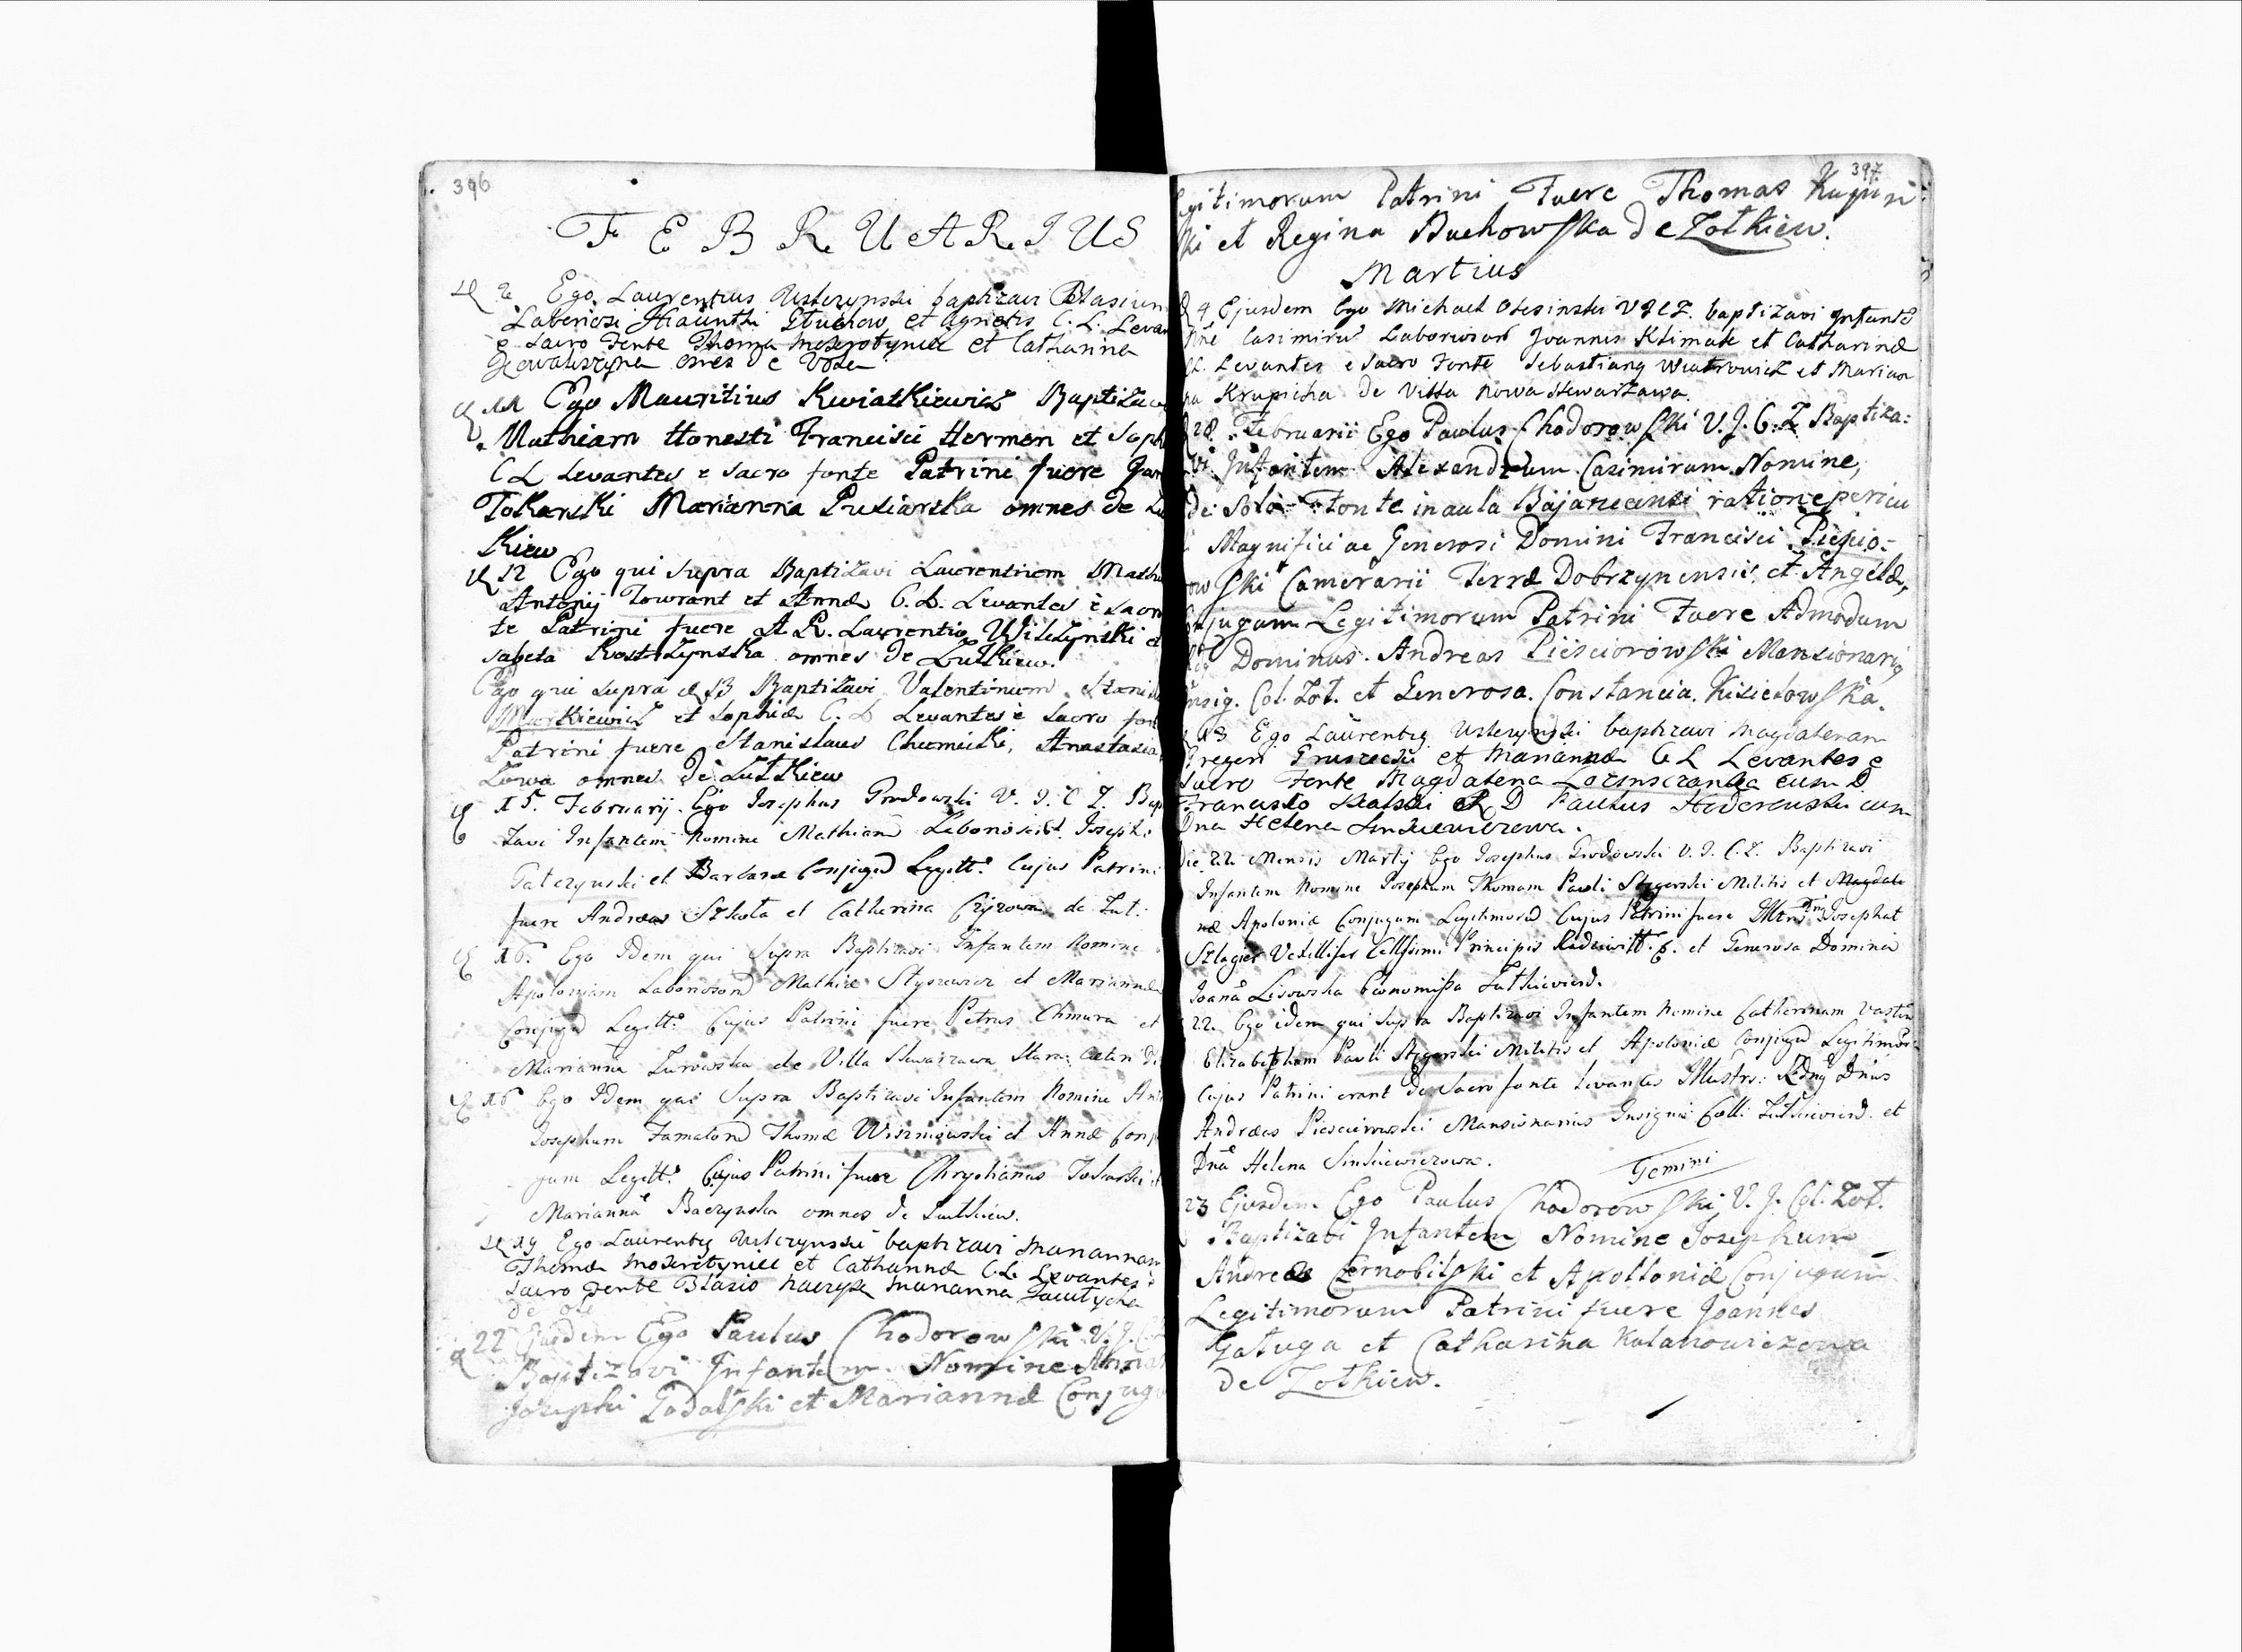 396
FEBRUARIUS
2 Ego Laurentius Usterzynski baptizavi Blasium
Laboriosi Hiacinthi et Agnetis C. L. Levan
e Sacro Fonte Thoma et Catharina
omes de
11 Ego Mauritius Kwiatkiewicz Baptizavi
Mathiam Honesti Francisci Hermen et Soph
C L Levantes e sacro fonte Patrini fuere Jan
Tokarski Marianna Prusiarska omnes de Zu
Kiew
12 Ego qui supra Baptizavi Laurentium Math
Antonij Towrant et Annæ C. L. Levantes è sacro
te Patrini fuere A. R. Laurentig Wilczynski e
sabeta omnes de ZułKiew.
Ego qui supra 13 Baptizavi Valentinum Stanis
MarKiewicz et Sophiæ C. L Levantes è sacro fon
Patrini fuere Stanislaus Chumicki, Anastasia
Zowa omnes de ZułKiew
15. Februarij. Ego Josephus Grodowski V. J. C Z. Bap
zavi Infantem Nomine Mathiam Josephi
Gałczynski et Barbaræ Conjugũ Legitt: Cujus Patrini
fuere Andreas Szkuta et Catherina de Zuł:
16. Ego Idem qui Supra Baptizavi Infantem Nomine
Apoloniam Mathiæ Styszewicz et Mariannæ
Conjugũ Legitt: Cujus Patrini fuere Petrus Chmura et
Marianna Zurowska de Villa Skwarzawa Stara
16 Ego Idem qui Supra Baptizavi Infantem Nomine
Josephum Famatorũ Thomæ Wiszniowski et Annæ Conju
gum Legitt: Cujus Patrini fuere Chrystianus Tokarski
Marianna Baczynska omnes de Zułkiew.
19 Ego Laurentig Usterzynski baptizavi Mariannam
Thomæ et Catharinæ C. L. Levantes è
sacro Fonte Blasio Marianna
de
22 Ejusdem Ego Paulus Chodorowski V. J. C.
Baptizavi Infantem Nomine Annam
Josephi Podalski et Mariannæ Conjugu
397
legitimorum Patrini Fuere Thomas Kugin
ski et Regina Buchowska de Zołkiew.
Martius
4 Ejusdem Ego Michael Olesinski V J C Z. baptizavi Infantẽ
Noie Casimirũ Laboriosorũ Joannis Klimate et Catharinæ
Levantes e Sacro Fonte Sebastiang Wiatrowicz et Marian
na Krupicha de Villa Nowa Skwarzawa.
28. Februarii Ego Paulus Chodorowski V. J. C. Z. Baptiza:
vi Infantem Alexandrum Casimirum Nomine,
de Solo Fonte in aula Bojanicensi ratione pericu
Magnifici ac Generosi Domini Francisci Piescio:
rowski Camerarii Terræ Dobrzynensis, et Angelæ,
Conjugum Legitimorum Patrini Fuere Admodum
Rdg Dominus. Andreas Piesciorowski Mansionarig
Insig. Col. Zoł. et Generosa. Constancia. Kisielowska.
13 Ego Laurentig Usterzynski baptizavi Magdalenam
Gregorii Gruszecki et Mariannæ C L Levantes e
Sacro Fonte Magdalena cum D
Francisco R D Paulus cum
Dna Helena Sinkiewiczowa.
Die. 22. Mensis Martij Ego Josephus Grodowski V. J. C. Z. Baptizavi
Infantem Nomine Josephum Thomam Pauli Stegerski Militis et Magdale
næ Apoloniæ Conjugum Legitimorũ Cujus Patrini fuere Josephat
Szlagier Vexillifer Cellssimi Principis et Generosa Domina
Joana Lisowska Œconomissa Zułkievien.
22. Ego idem qui Supra Baptizavi Infantem Nomine Catherinam
Elizabetham Pauli Stegerski Militis et Apoloniæ Conjugũ Legitimor
Cujus Patrini erant de Sacro fonte Levantes Illustrs: Rdng Dnus
Andreas Piesciorowski Mansionarius Insignis Colli Zułkievien. et
Dna Helena Sinkiewiczowa.
Gemini
23 Ejusdem Ego Paulus Chodorowski, V. J. Col. Zoł.
Baptizavi Infantem Nomine Josephum
Andreæ Czernobilski et Apolloniæ Conjugum
Legitimorum Patrini fuere Joannes
Gatuga et Catharina Kulanowiczowa
de Zołkiew.